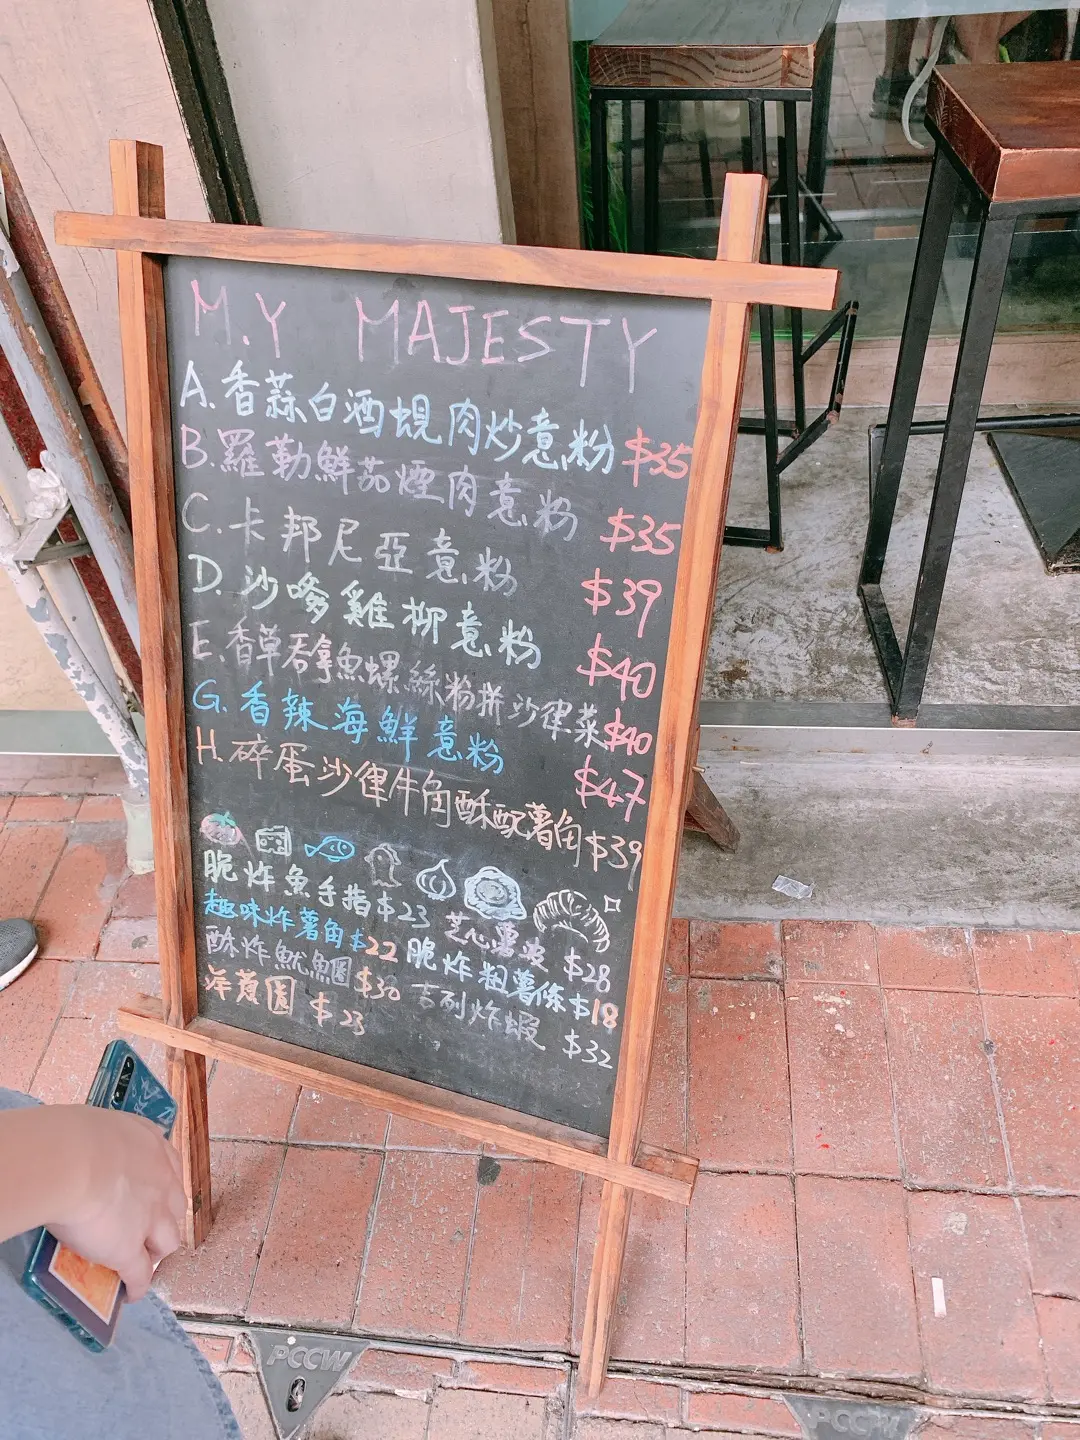 M.Y MAJESTY
A. 香蒜白酒蜆肉炒意粉 $35
B. 羅勒鮮茄煙肉意粉 $35
C. 卡邦尼亞意粉 $39
D. 沙嗲雞柳意粉 $40
E. 香草吞拿魚螺絲粉拼沙律菜 $40
G. 香辣海鮮意粉 $47
H. 碎蛋沙律牛角酥配薯角 $39
脆炸魚手指 $23
芝心薯波 $28
趣味炸薯角 $22
脆炸粗薯條 $18
酥炸魷魚圈 $30
吉列炸蝦 $32
洋蔥圈 $23
PCCW
PCCW